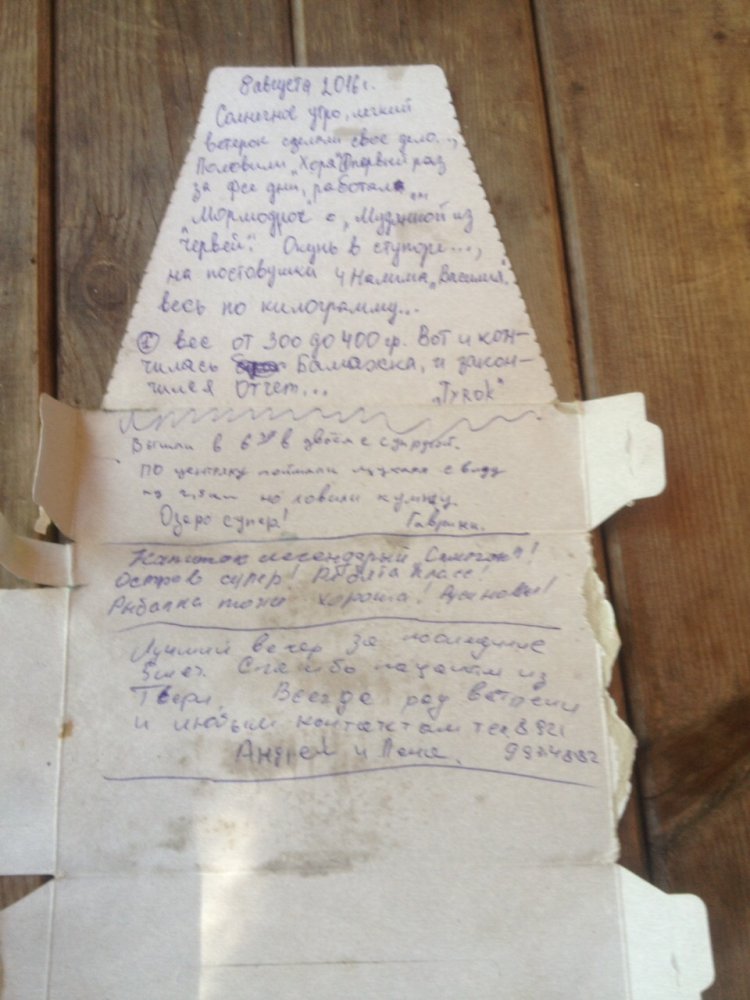 8 августа 2016 г.
Солнечное утро, легкий
ветерок сделали свое дело...,
Половили "Хоря" первый раз
за фсе дни, работал ...
"Мормодрос" с "Мудышкой из
червей". Окунь в ступоре...,
на поставушка 4 Налима "Василия".
весь по килограмму...
① вес от 300 до 400 гр. Вот и кон-
чилась Бамажка, и закон-
чился Отчет...
"Tyrok"
Вышли в 6 30 в двоем с супругой.
По центряку поймали щукаря с виду
на но ловили кумжу.
Озеро супер! Гаврики.
Капитан легендарный "Самогон"!
Остров супер! Ребята класс!
Рыбалка тоже хороша!
Лучший вечер за последние
5 лет. Спасибо пацанам из
Твери. Всегда рад встречи
и любым контактам тел 8 921
Андрей и 9974882